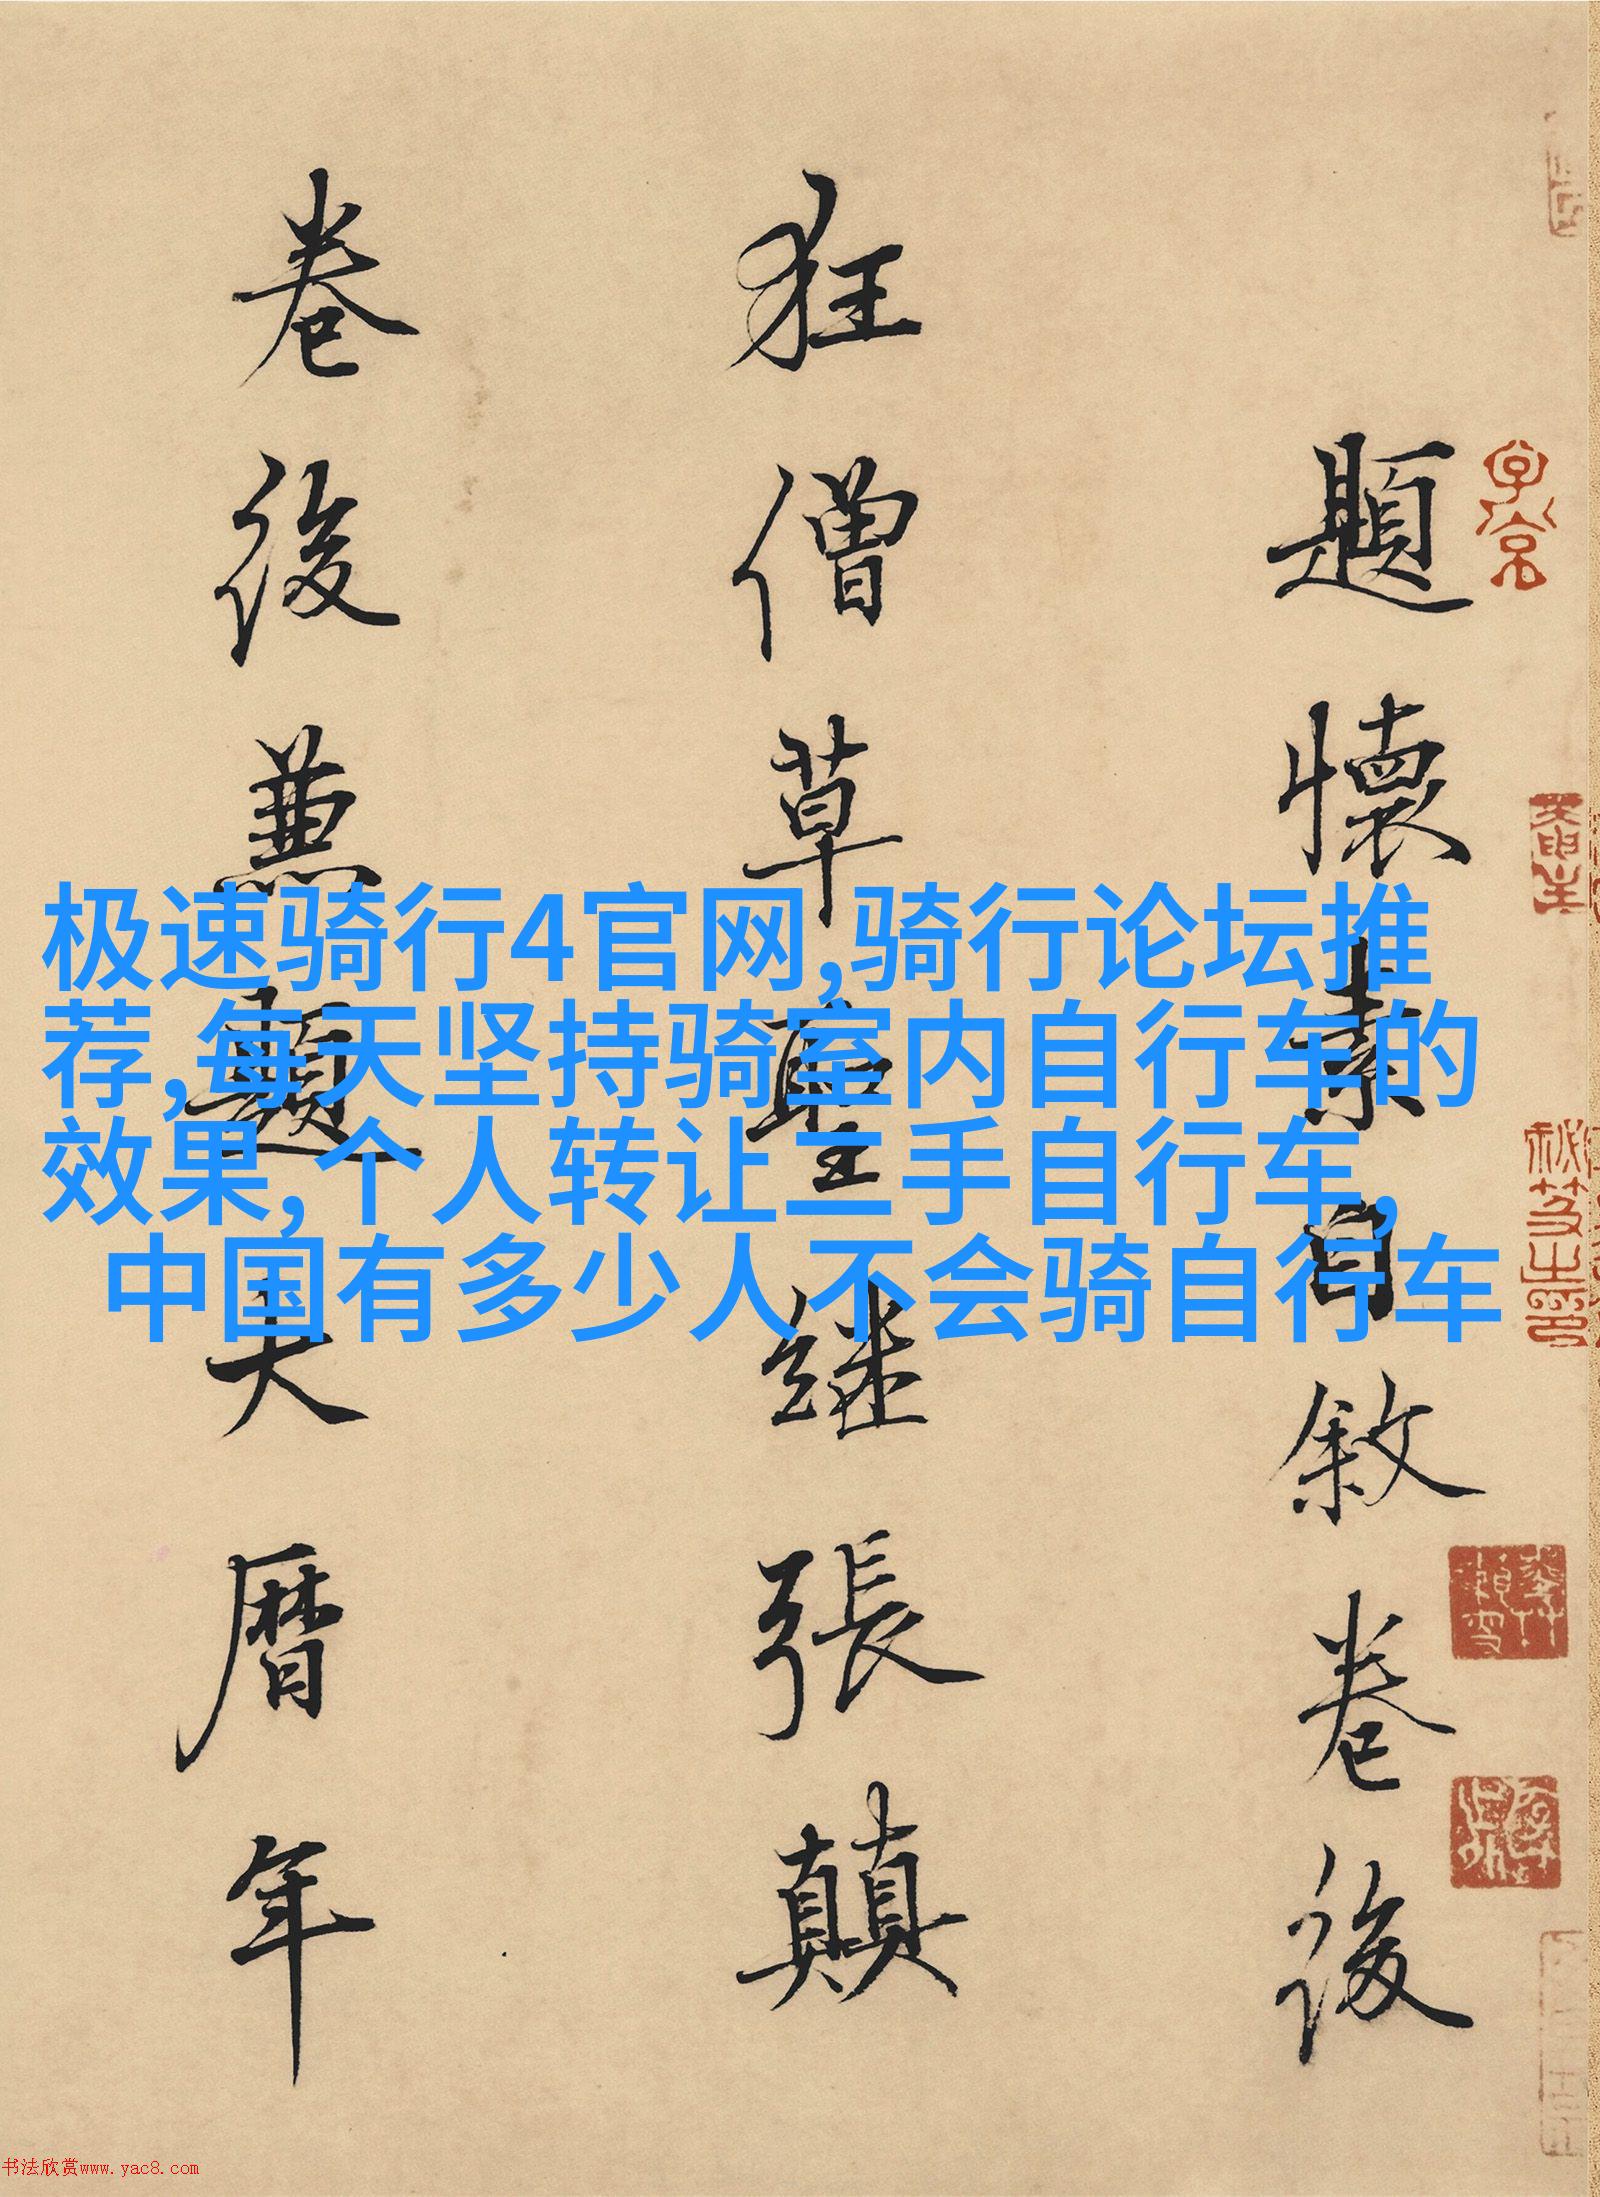 題懷素自敘卷後
狂僧草聖繼張顛
卷後兼題大曆年
极速骑行4官网,骑行论坛推
荐,每天坚持骑室内自行车的
效果,个人转让二手自行车,
中国有多少人不会骑自行车
书法欣赏www.yac8.com